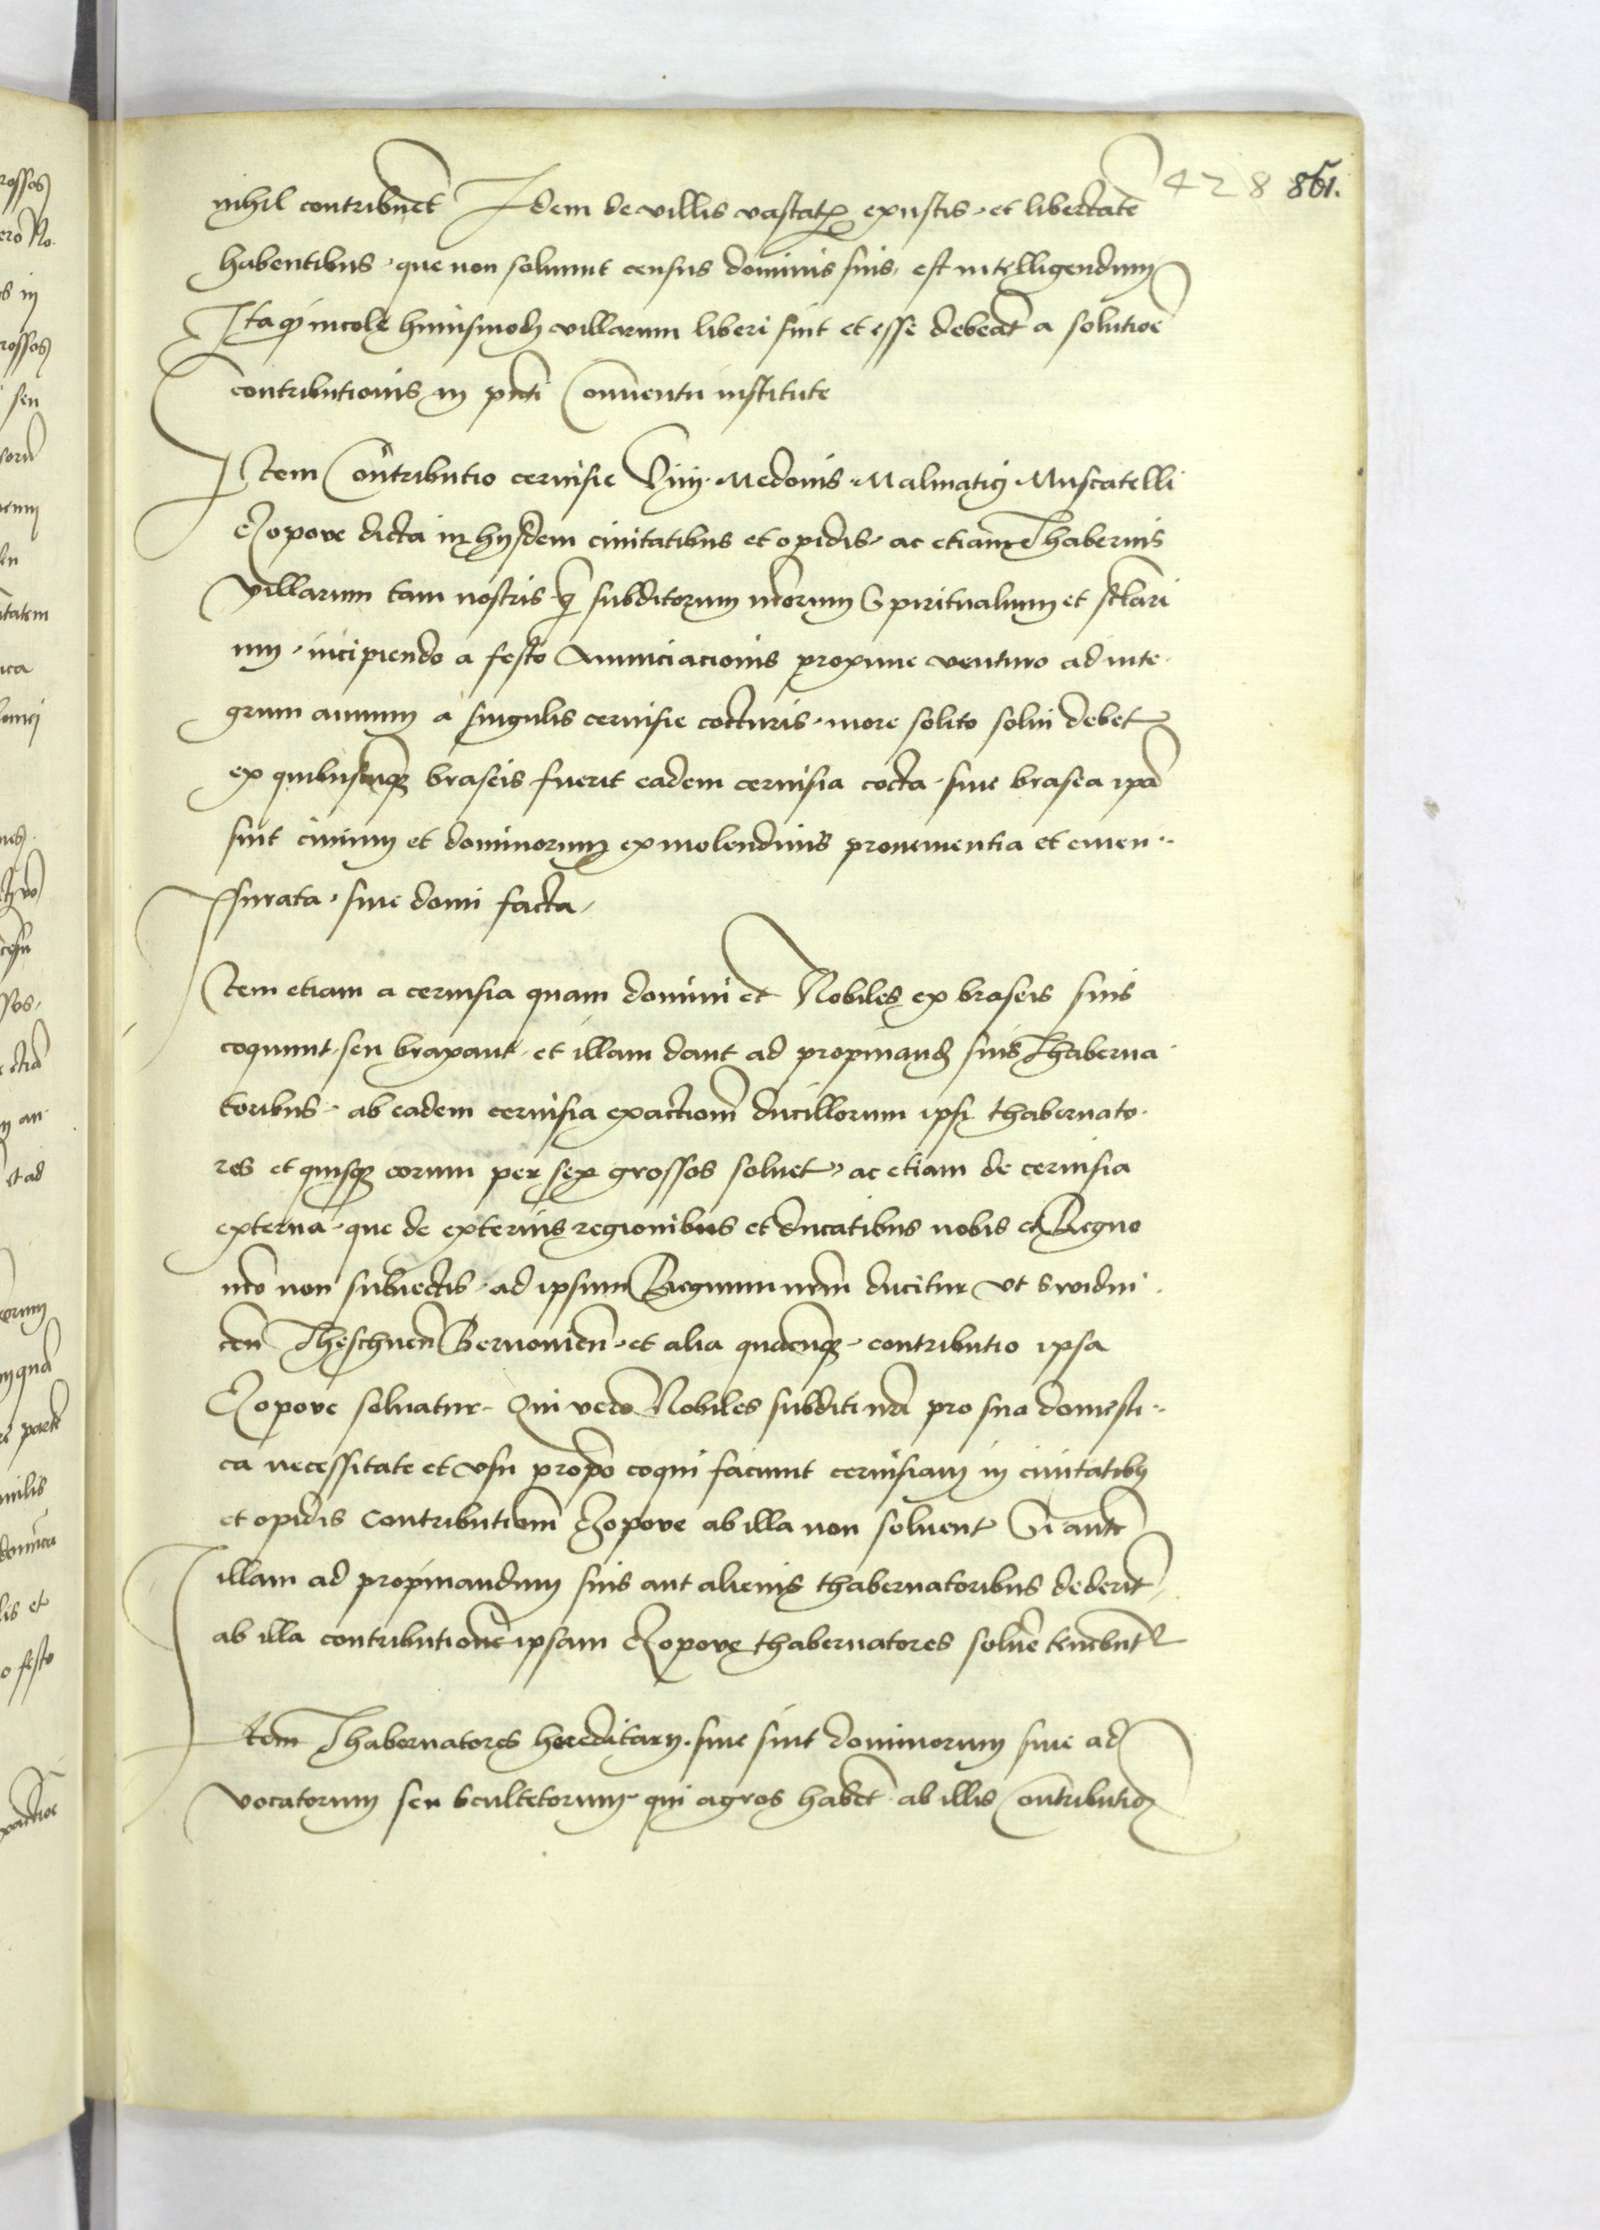 428 861.
nihil contribuet Idem de villis vastatis exustis et libertate
habentibus que non soluunt census dominis suis est intelligendum
Ita qd incole huiusmodi villarum liberi sint et esse debeat a solutioe
contributionis in pnti Conuentu institute
Item Contributio ceruisie Vini Medonis Malmatici Muscatelli
Czopove dicta in hysdem ciuitatibus et opidis ac etiam Thabernis
villarum tam nostris q subditorum nrorum Spiritualium et sclari
um incipiendo a festo Annunciacionis proxime venturo ad inte
grum annum a singulis ceruisie cocturis more solito solui debet
ex quibuscunq braseis fuerit eadem ceruisia cocta siue brasea ipa
sint ciuium et dominorum ex molendinis prouenientia et emen
surata siue domi facta
Item etiam a ceruisia quam domini et Nobiles ex braseis suis
coquunt seu braxant et illam dant ad propinand suis Thaberna
toribus ab eadem ceruisia exactiom ducillorum ipsi thabernato
res et quisq eorum per sex grossos soluet ac etiam de ceruisia
externa que de exteris regionibus et ducatibus nobis et Regno
nro non subiectis ad ipsum Regnum nrm ducitur vt Swidni
cen Theschnen Bernowien et alia quecunq contributio ipsa
Czopove soluatur Qui vero Nobiles subditi nri pro sua domesti
ca necessitate et vsu proprio coqui faciunt ceruisiam in ciuitatibus
et opidis contributiom Czopove ab illa non soluent Si aute
illam ad propinandum suis aut alienis thabernatoribus dederit
ab illa contributione ipsam Czopove thabernatores soluere tenebunt
Item Thabernatores hereditarii siue sint dominorum siue ad
vocatorum seu scultetorum qui agros habet ab illis contributio